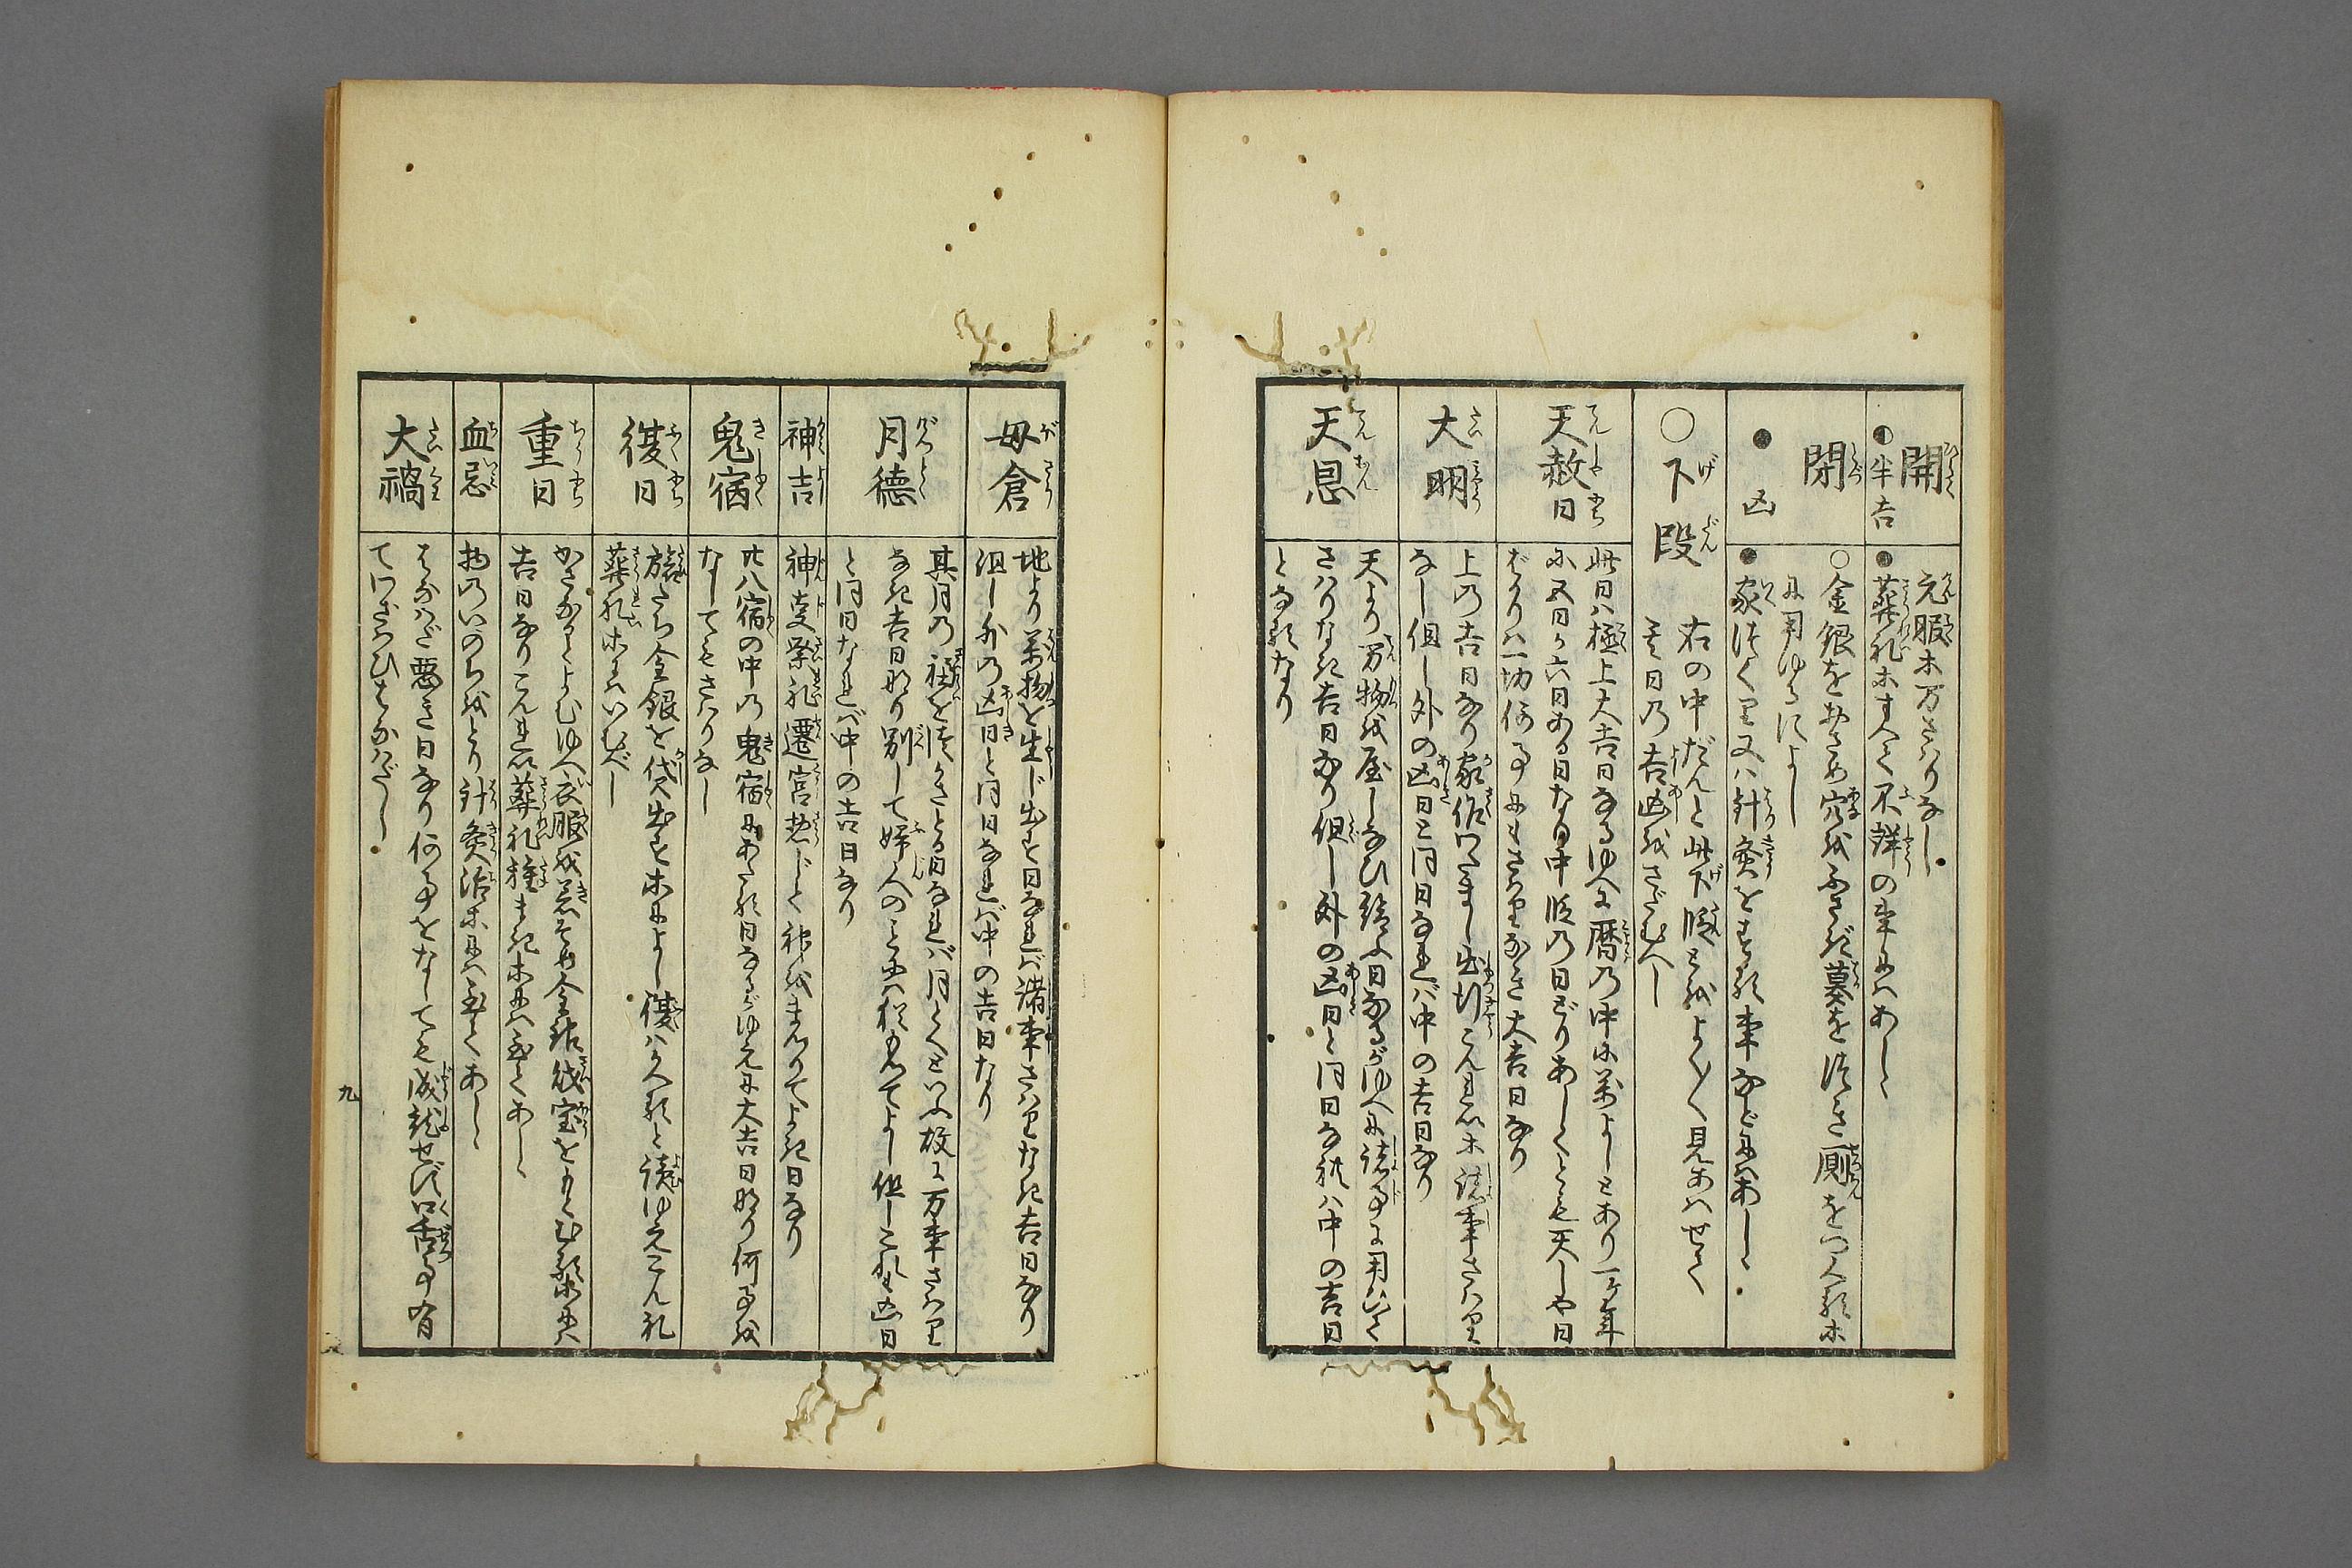 開
◐半吉
元服ホ万さハりなし
●葬礼ホすべて不祥の事にハあしゝ
閉
●凶
○金銀をおさめ穴をふさぎ墓をつき厠をつくるホ
に用ゆるによし
●家つくり又ハ針灸をする事などにハあしゝ
○下段
右の中だんと此下段とをよく〳〵見あハせて
其日の吉凶をさだむべし
天赦日
此日ハ極上大吉日なるゆへに暦の中に万よしとあり一ヶ年
に五日か六日ある日なり中段の日どりあしくとも天しや日
ばかりハ一切何事にもさハりなき大吉日なり
大明
上の吉日なり家作わたまし出行こんれいホ諸事さハり
なし但し外の凶日と同日なれば中の吉日なり
天恩
天より万物を
さハりなき吉日なり但し外の凶日と同日なれハ中の吉日
となるなり
母倉
地より万物を生じ出す日なれば諸事さハりなき吉日なり
但し外の凶日と同日なれば中の吉日なり
月徳
其月の福をつかさどる日なれバ月とくといふ故に万事さハり
なき吉日なり別して婦人のことにハ極めてよし但しこれも凶日
と同日なれバ中の吉日なり
神吉
神事祭礼遷宮惣じて神をまつりてよき日なり
鬼宿
廿八宿の中の鬼宿にあたる日なるがゆえに大吉日なり何事を
なしてもさハりなし
復日
旅だち金銀を貸出すホによし復ハかへると読ゆえこん礼
葬礼ホにハいむべし
重日
かさなるとよむゆへ衣服を着そめ金銀財宝をもとむるホにハ
吉日なりこんれい葬礼種まきホにハ至てあしゝ
血忌
物のいのちをとり針灸治ホにハ至てあしゝ
大禍
はなハだ悪き日なり何事をなしても成就せず口舌事有
てわざハひはなハだし
九